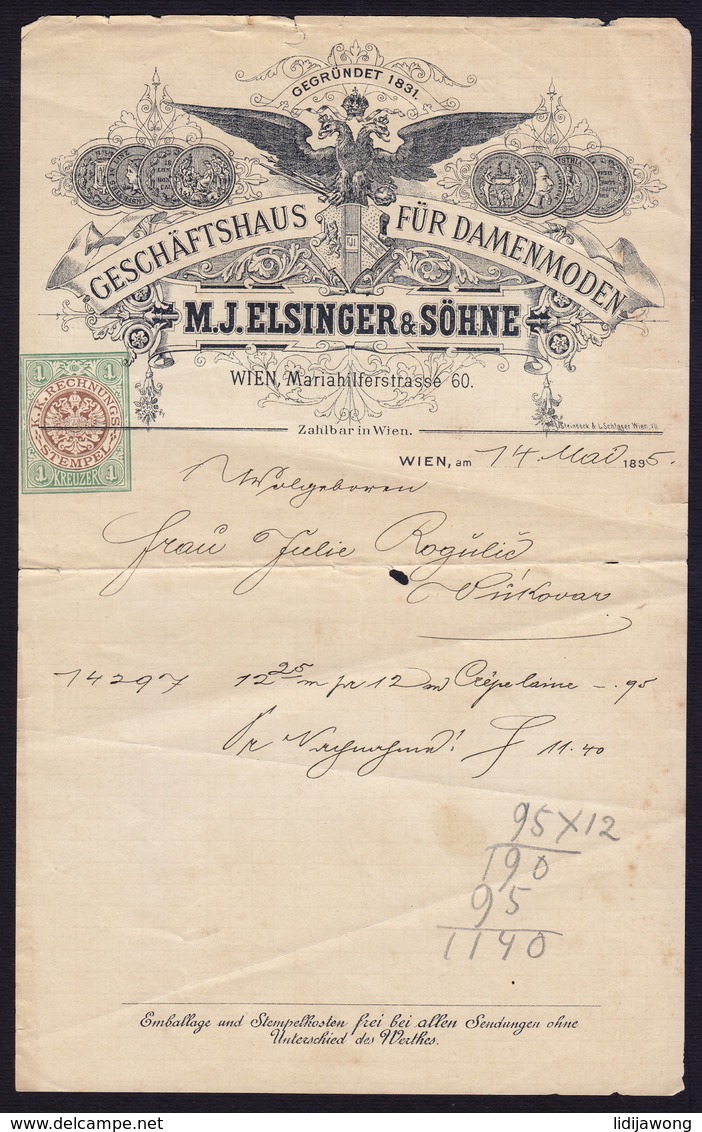 GEGRÜNDET 1831.
GESCHÄFTSHAUS FÜR DAMENMODEN
M.J. ELSINGER & SÖHNE
WIEN, Mariahilferstrasse 60.
Zahlbar in Wien.
1 1
K.K. RECHNUNGS STEMPEL
1 KREUZER 1
WIEN, am 14. Mai 1895.
Wolgeboren
Frau Julie Rogulić
Vukovar
14297 12 25 m pr 12 m Crêpelaine -. 95
Pr Nachnahme! f 11.40
95 X 12
190
95
1140
Emballage und Stempelkosten frei bei allen Sendungen ohne
Unterschied des Werthes.
lidijawong